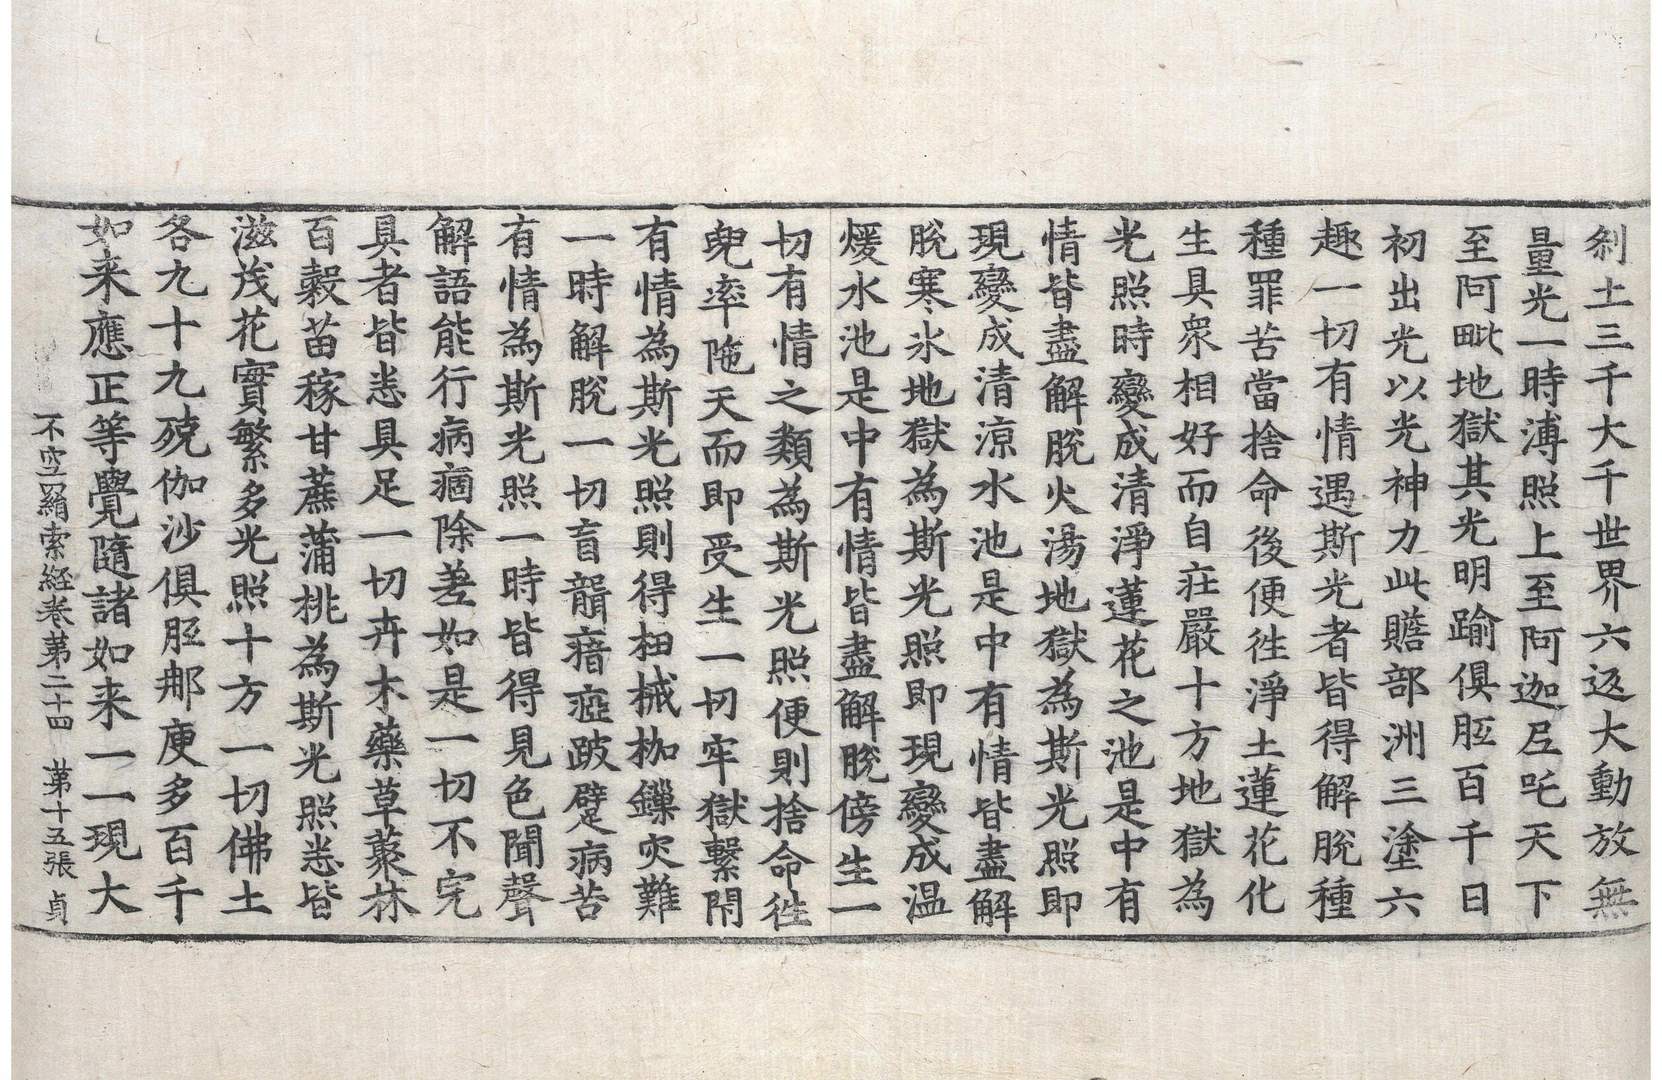 刹土三千大千世界六返大動放無
量光一時溥照上至阿迦尼吒天下
至阿毗地獄其光明踰俱胝百千日
初出光以光神力此贍部洲三塗六
趣一切有情遇斯光者皆得解脫種
種罪苦當捨命後便徃淨土蓮花化
生具衆相好而自莊嚴十方地獄為
光照時變成清淨蓮花之池是中有
情皆盡解脫火湯地獄為斯光照即
現變成清涼水池是中有情皆盡解
脫寒氷地獄為斯光照即現變成温
煖水池是中有情皆盡解脫傍生一
切有情之類為斯光照便則捨命徃
覩率陁天而即受生一切牢獄繫閇
有情為斯光照則得杻械枷鏁灾難
一時解脫一切盲聾瘖瘂跛躄病苦
有情為斯光照一時皆得見色聞聲
解語能行病痼除差如是一切不完
具者皆悉具足一切卉木藥草藂林
百穀苗稼甘蔗蒲桃為斯光照悉皆
滋茂花實繁多光照十方一切佛土
各九十九殑伽沙俱胝那庾多百千
如来應正等覺隨諸如来一一現大
不空羂索経卷第二十四　第十五張　貞